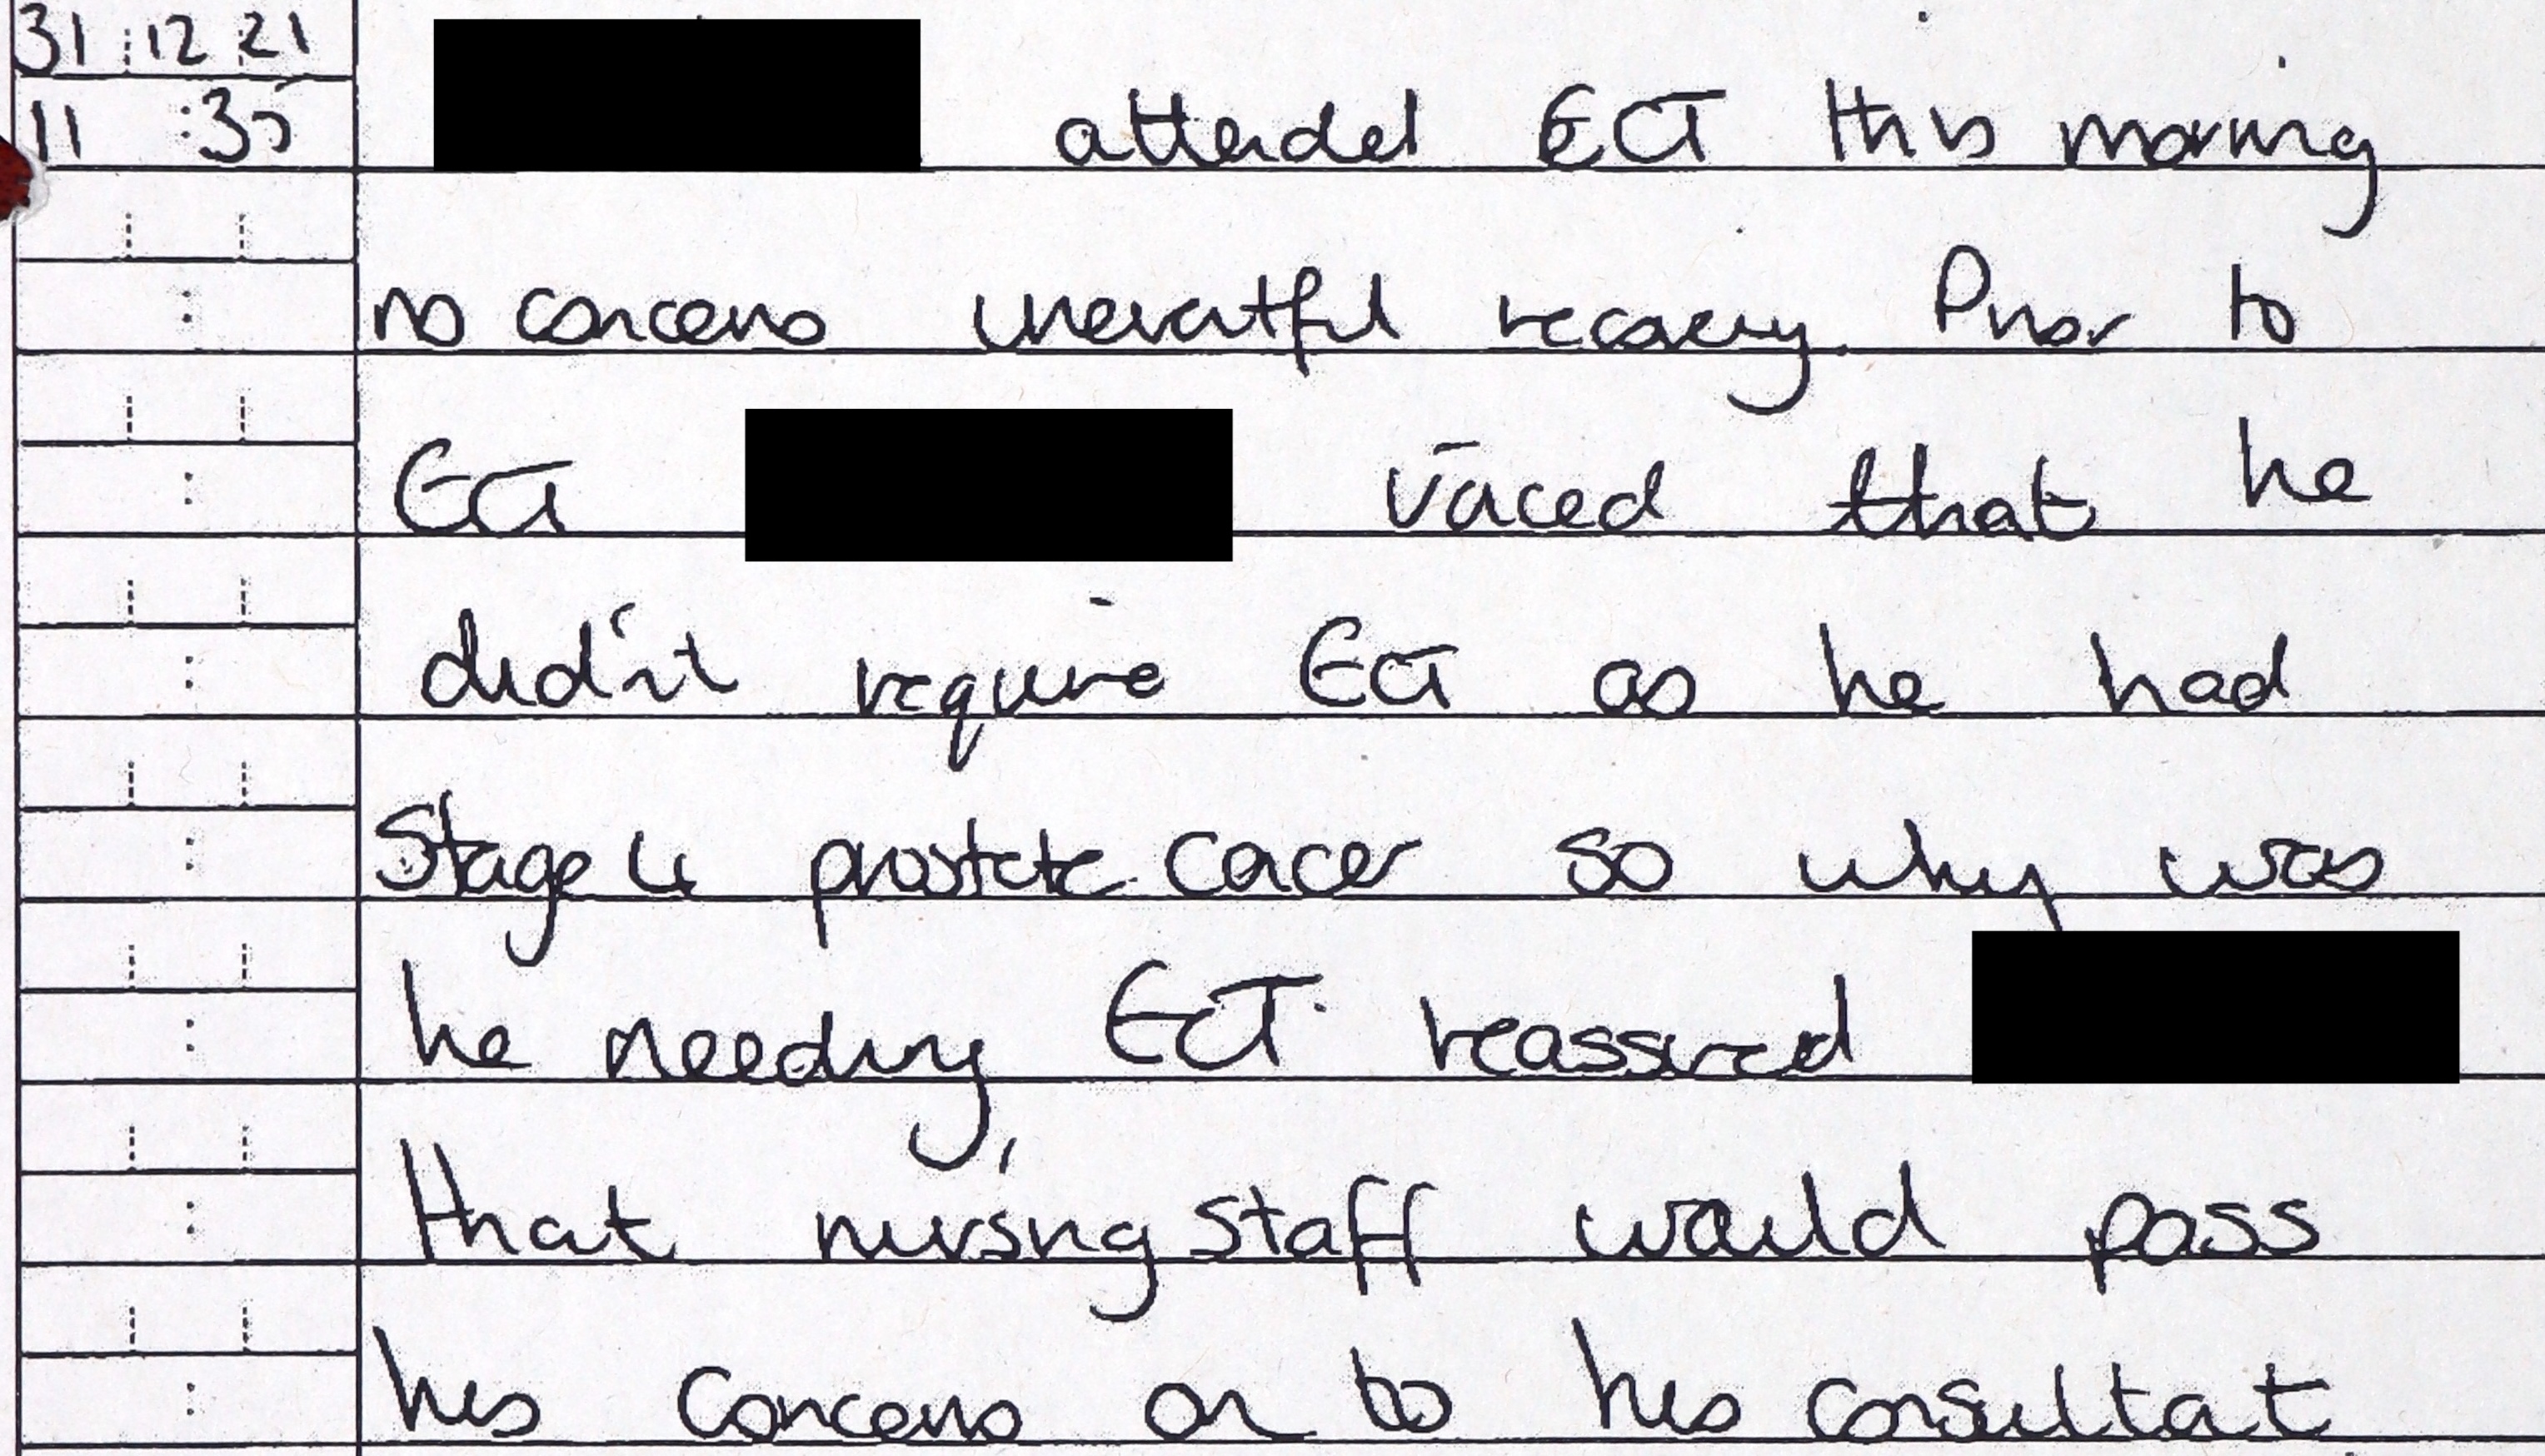 31 12 21
11:35 attended ECT this morning
no concerns uneventful recovery. Prior to
ECT voiced that he
didn't require ECT as he had
Stage 4 prostate cancer so why was
he needing, ECT reassured
that nursing staff would pass
his concerns on to his consultant